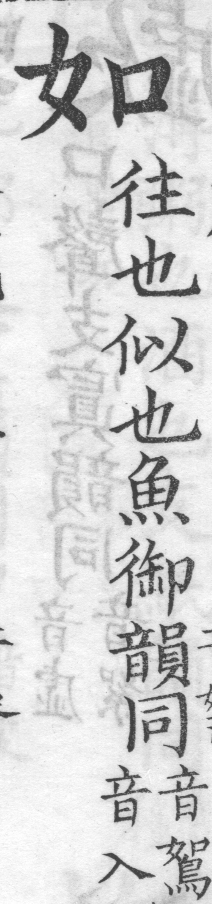 如
往也似也魚御韻同
音鴽
音入